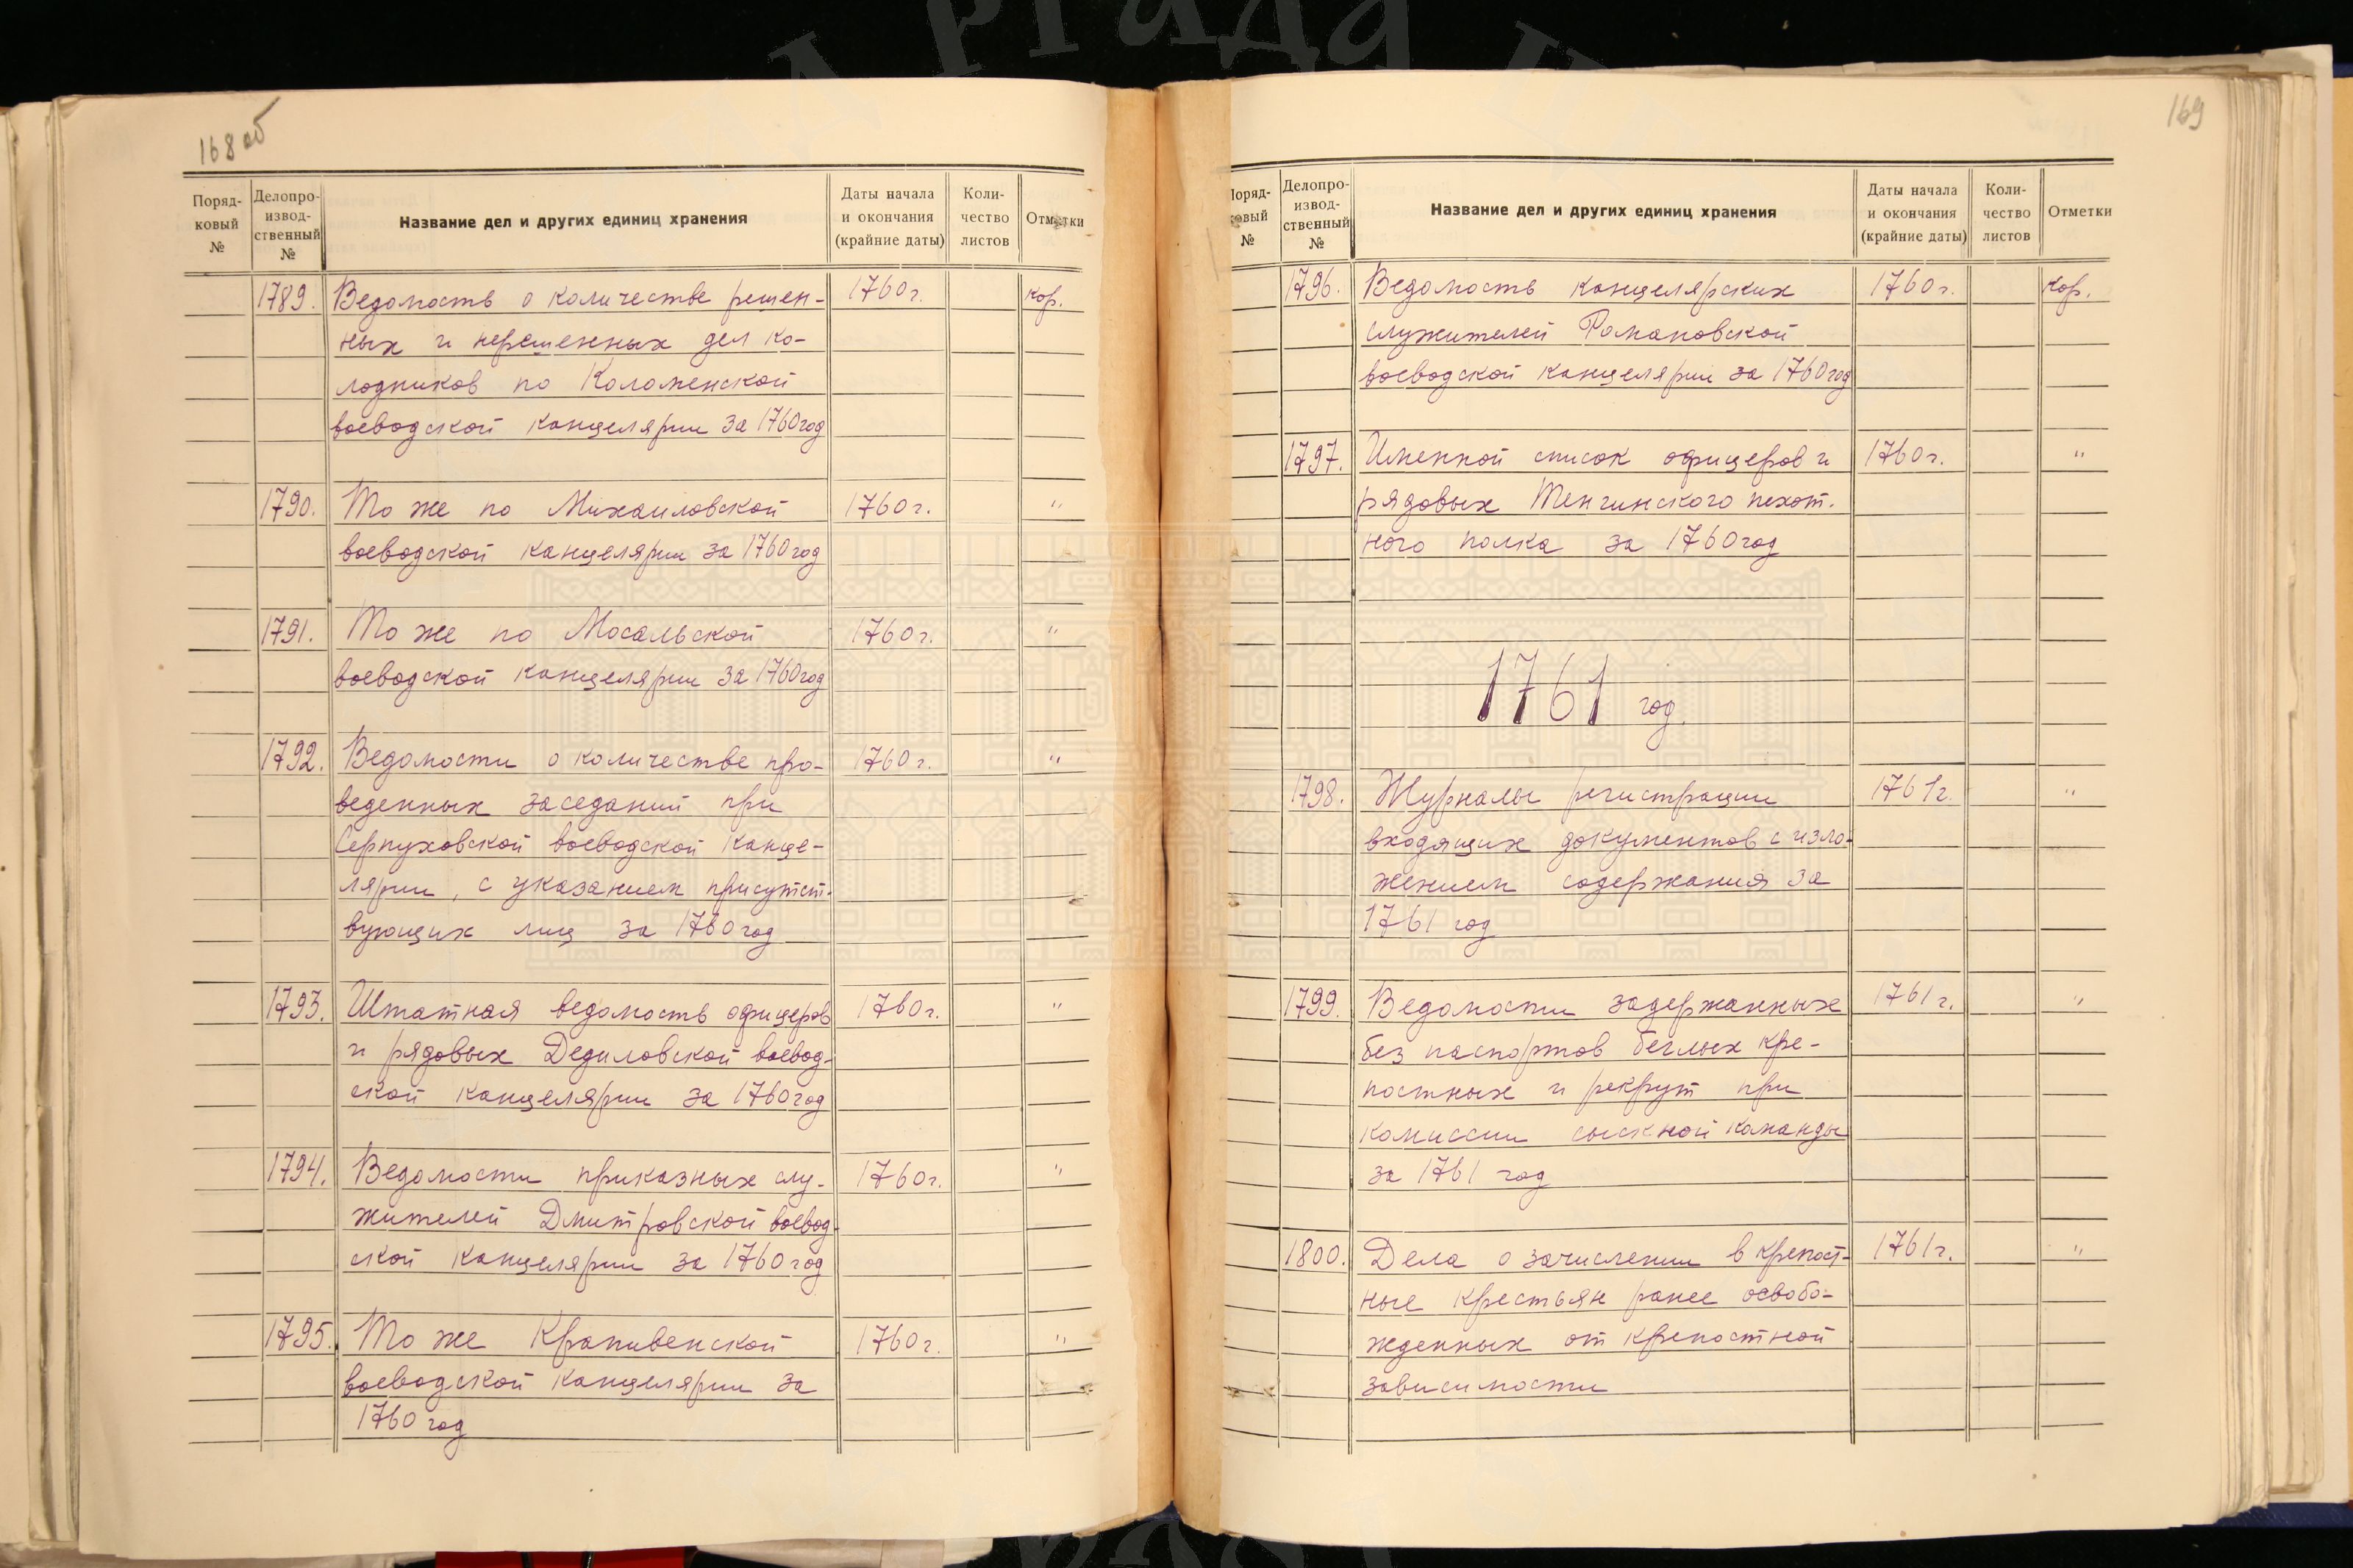 168 об
Поряд-
ковый
№
Делопро-
извод-
ственный
№
Название дел и других единиц хранения
Даты начала
и окончания
(крайние даты)
Коли-
чество
листов
Отметки
1789. Ведомость о количестве решен- 1760 г. кор.
ных и нерешенных дел ко-
лодников по Коломенской
воеводской канцелярии за 1760 год
1790. То же по Михайловской 1760 г. "
воеводской канцелярии за 1760 год
1791. То же по Мосальской 1760 г. "
воеводской канцелярии за 1760 год
1792. Ведомости о количестве про- 1760 г. "
веденных заседаний при
Серпуховской воеводской канце-
лярии, с указанием присутст-
вующих лиц за 1760 год
1793. Штатная ведомость офицеров 1760 г. "
и рядовых Дедиловской воевод-
ской канцелярии за 1760 год
1794. Ведомости приказных слу- 1760 г. "
жителей Дмитровской воевод-
ской канцелярии за 1760 год
1795. То же Крапивенской 1760 г. "
воеводской канцелярии за
1760 год
169
Поряд-
ковый
№
Делопро-
извод-
ственный
№
Название дел и других единиц хранения
Даты начала
и окончания
(крайние даты)
Коли-
чество
листов
Отметки
1796. Ведомость канцелярских 1760 г. кор.
служителей Романовской
воеводской канцелярии за 1760 год
1797. Именной список офицеров и 1760 г. "
рядовых Тенгинского пехот-
ного полка за 1760 год
1761 год.
1798. Журналы регистрации 1761 г. "
входящих документов с изло-
жением содержания за
1761 год
1799. Ведомости задержанных 1761 г. "
без паспортов беглых кре-
постных и рекрут при
комиссии сыскной команды
за 1761 год
1800. Дела о зачислении в крепост- 1761 г. "
ные крестьян ранее освобо-
жденных от крепостной
зависимости